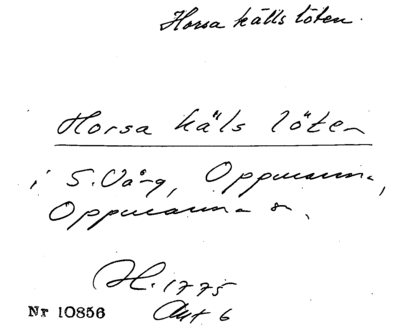 Horsa källs löten.
Horsa käls löten
i S. Vång, Oppmanna,
Oppmanna sn.
H. 1775
Akt 6
Nr 10856